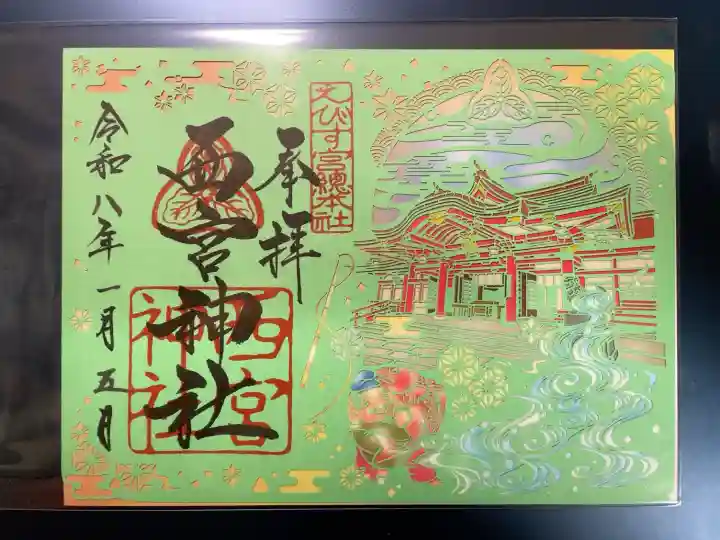 奉拝
えびす宮總本社
西宮神社
西宮
神社
令和八年一月五日